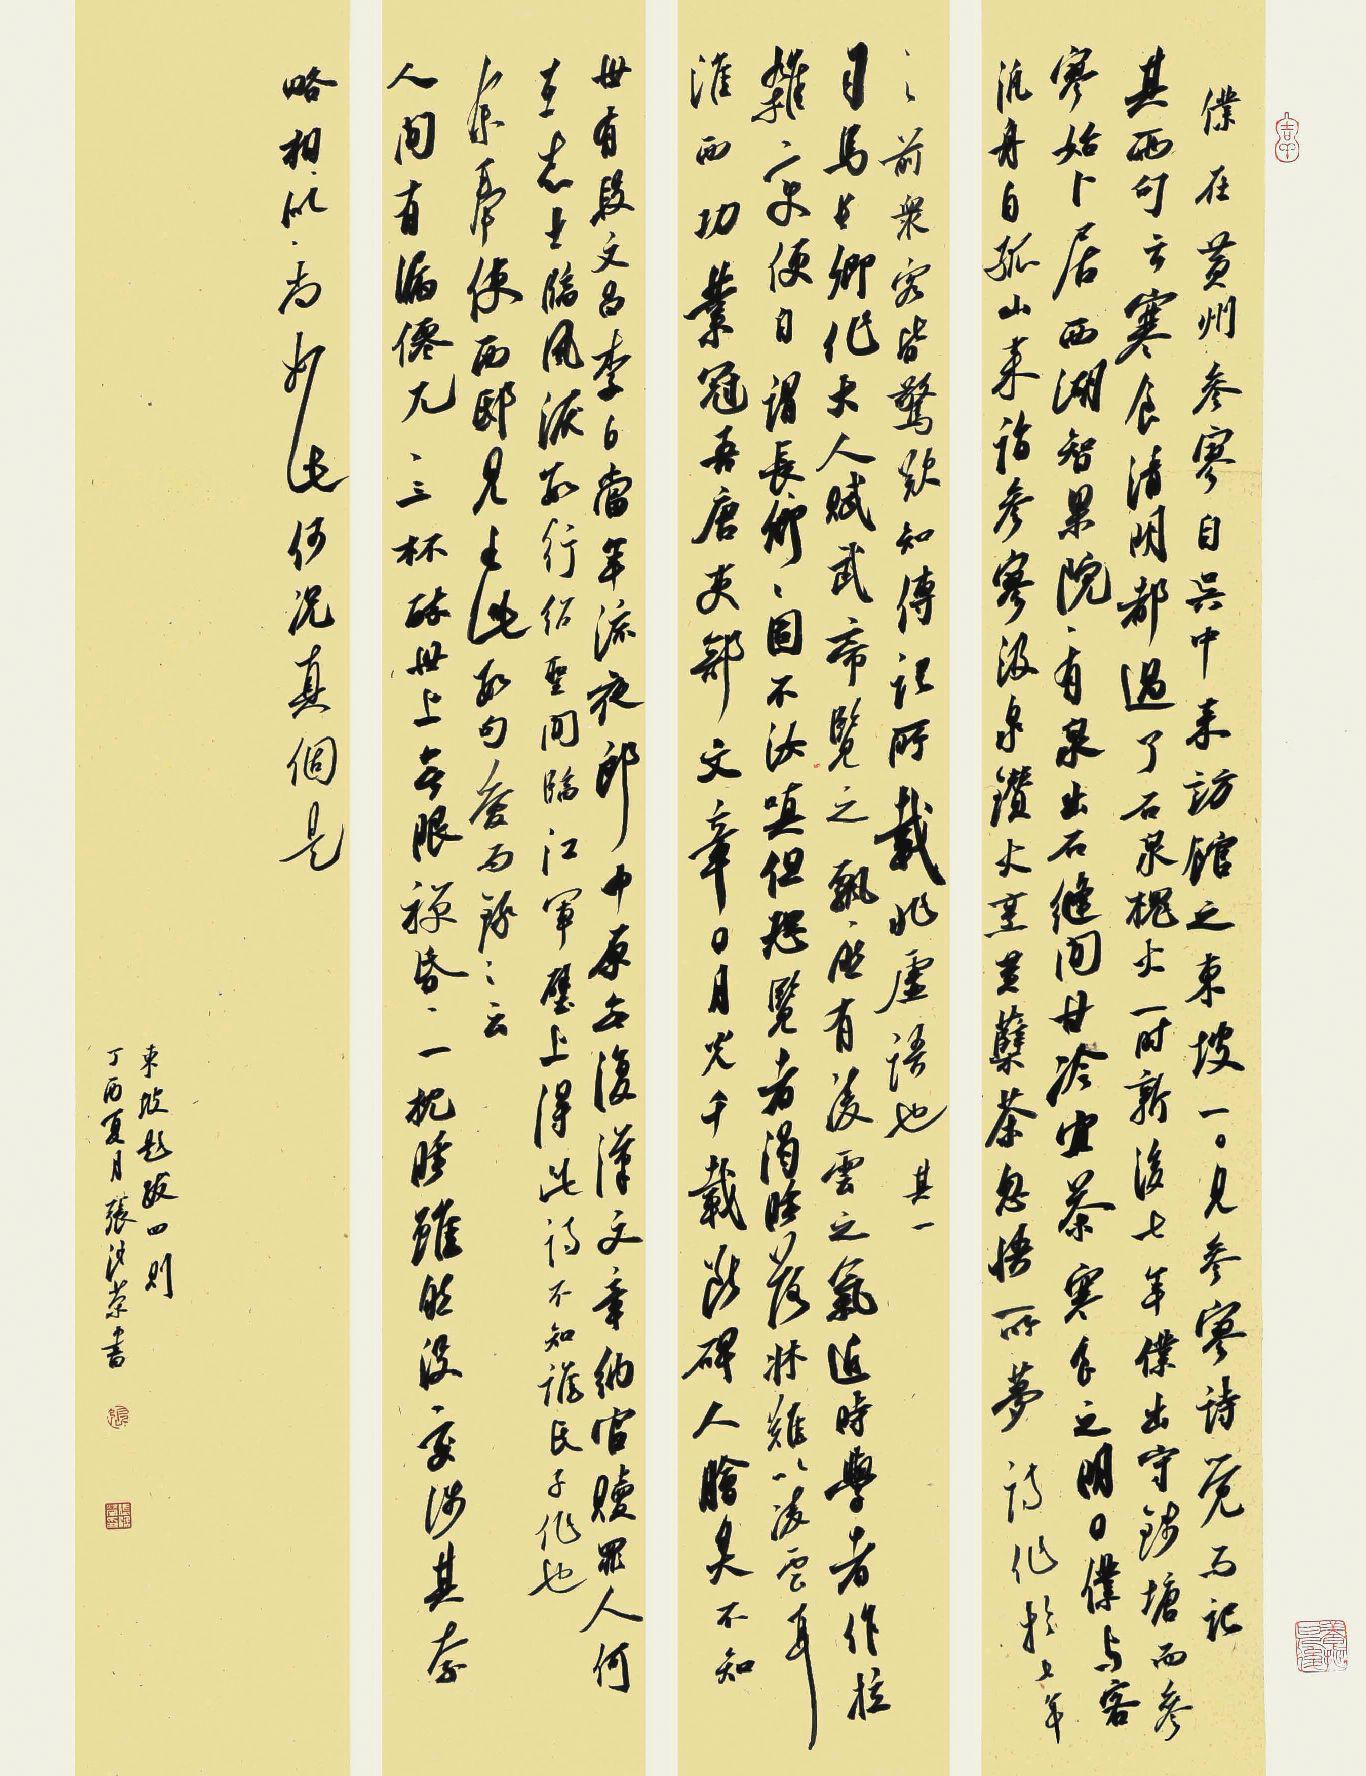 僕在黃州參寥自吳中來訪館之東坡一日見參寥詩覺而記
其兩句云寒食清明都過了石泉槐火一時新後七年僕出守錢塘而參
寥始卜居西湖智果院、有泉出石縫間甘冷宜茶寒食之明日僕與客
汎舟自孤山來詣參寥汲泉鑽火烹黃蘗茶忽悟所夢詩作於七年
之前眾客皆驚歎知傳記所載非虛語也 其一
司馬長卿作大人賦武帝覽之飄、然有凌雲之氣近時學者作拉
雜、字便自謂長卿、固不汝嗔但恐覽者渴睡落牀難以凌雲耳
淮西功業冠吾唐吏部文章日月光千載斷碑人膾炙不知
世有段文昌李白當年流夜郎中原無復漢文章納官贖罪人何
在志士臨風淚數行紹聖間臨江軍壁上得此詩不知誰氏子作也
余奉使西邸見書此數句愛而錄之云
人間有漏僊兀、三杯醉世上無眼禪昏、一枕睡雖然沒交涉其奈
略相似、尚如此何況真個是
東坡題跋四則
丁酉夏月張書